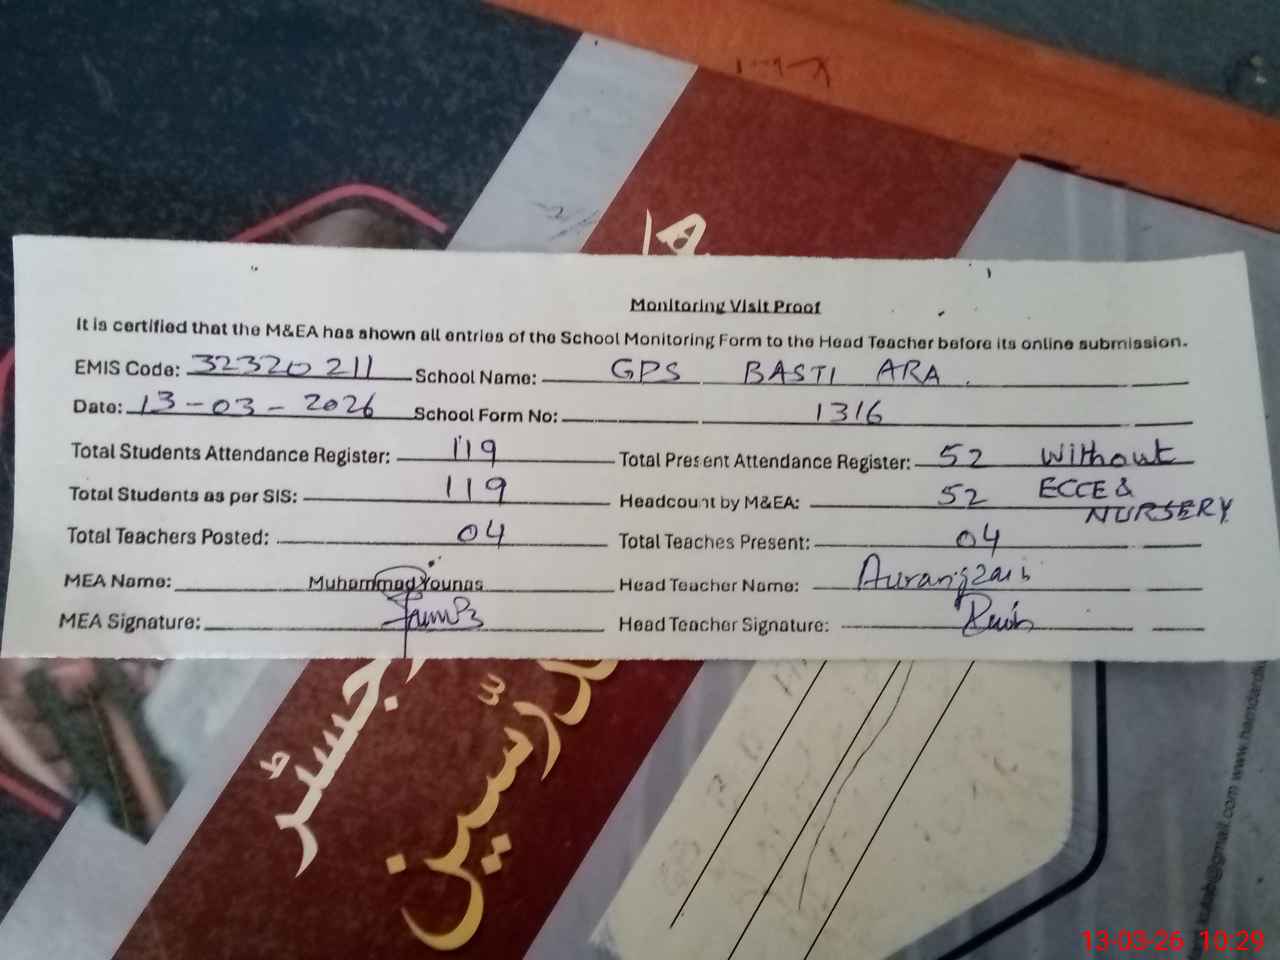 Monitoring Visit Proof
It is certified that the M&EA has shown all entries of the School Monitoring Form to the Head Teacher before its online submission.
EMIS Code: 32320211 School Name: GPS BASTI ARA
Date: 13-03-2026 School Form No: 1316
Total Students Attendance Register: 119 Total Present Attendance Register: 52 without
Total Students as per SIS: 119 Headcount by M&EA: 52 ECCE & NURSERY
Total Teachers Posted: 04 Total Teaches Present: 04
MEA Name: Muhammad Younas Head Teacher Name: Aurangzaib
MEA Signature: Head Teacher Signature:
رجسٹر
مدرّسین
13-03-26 10:29